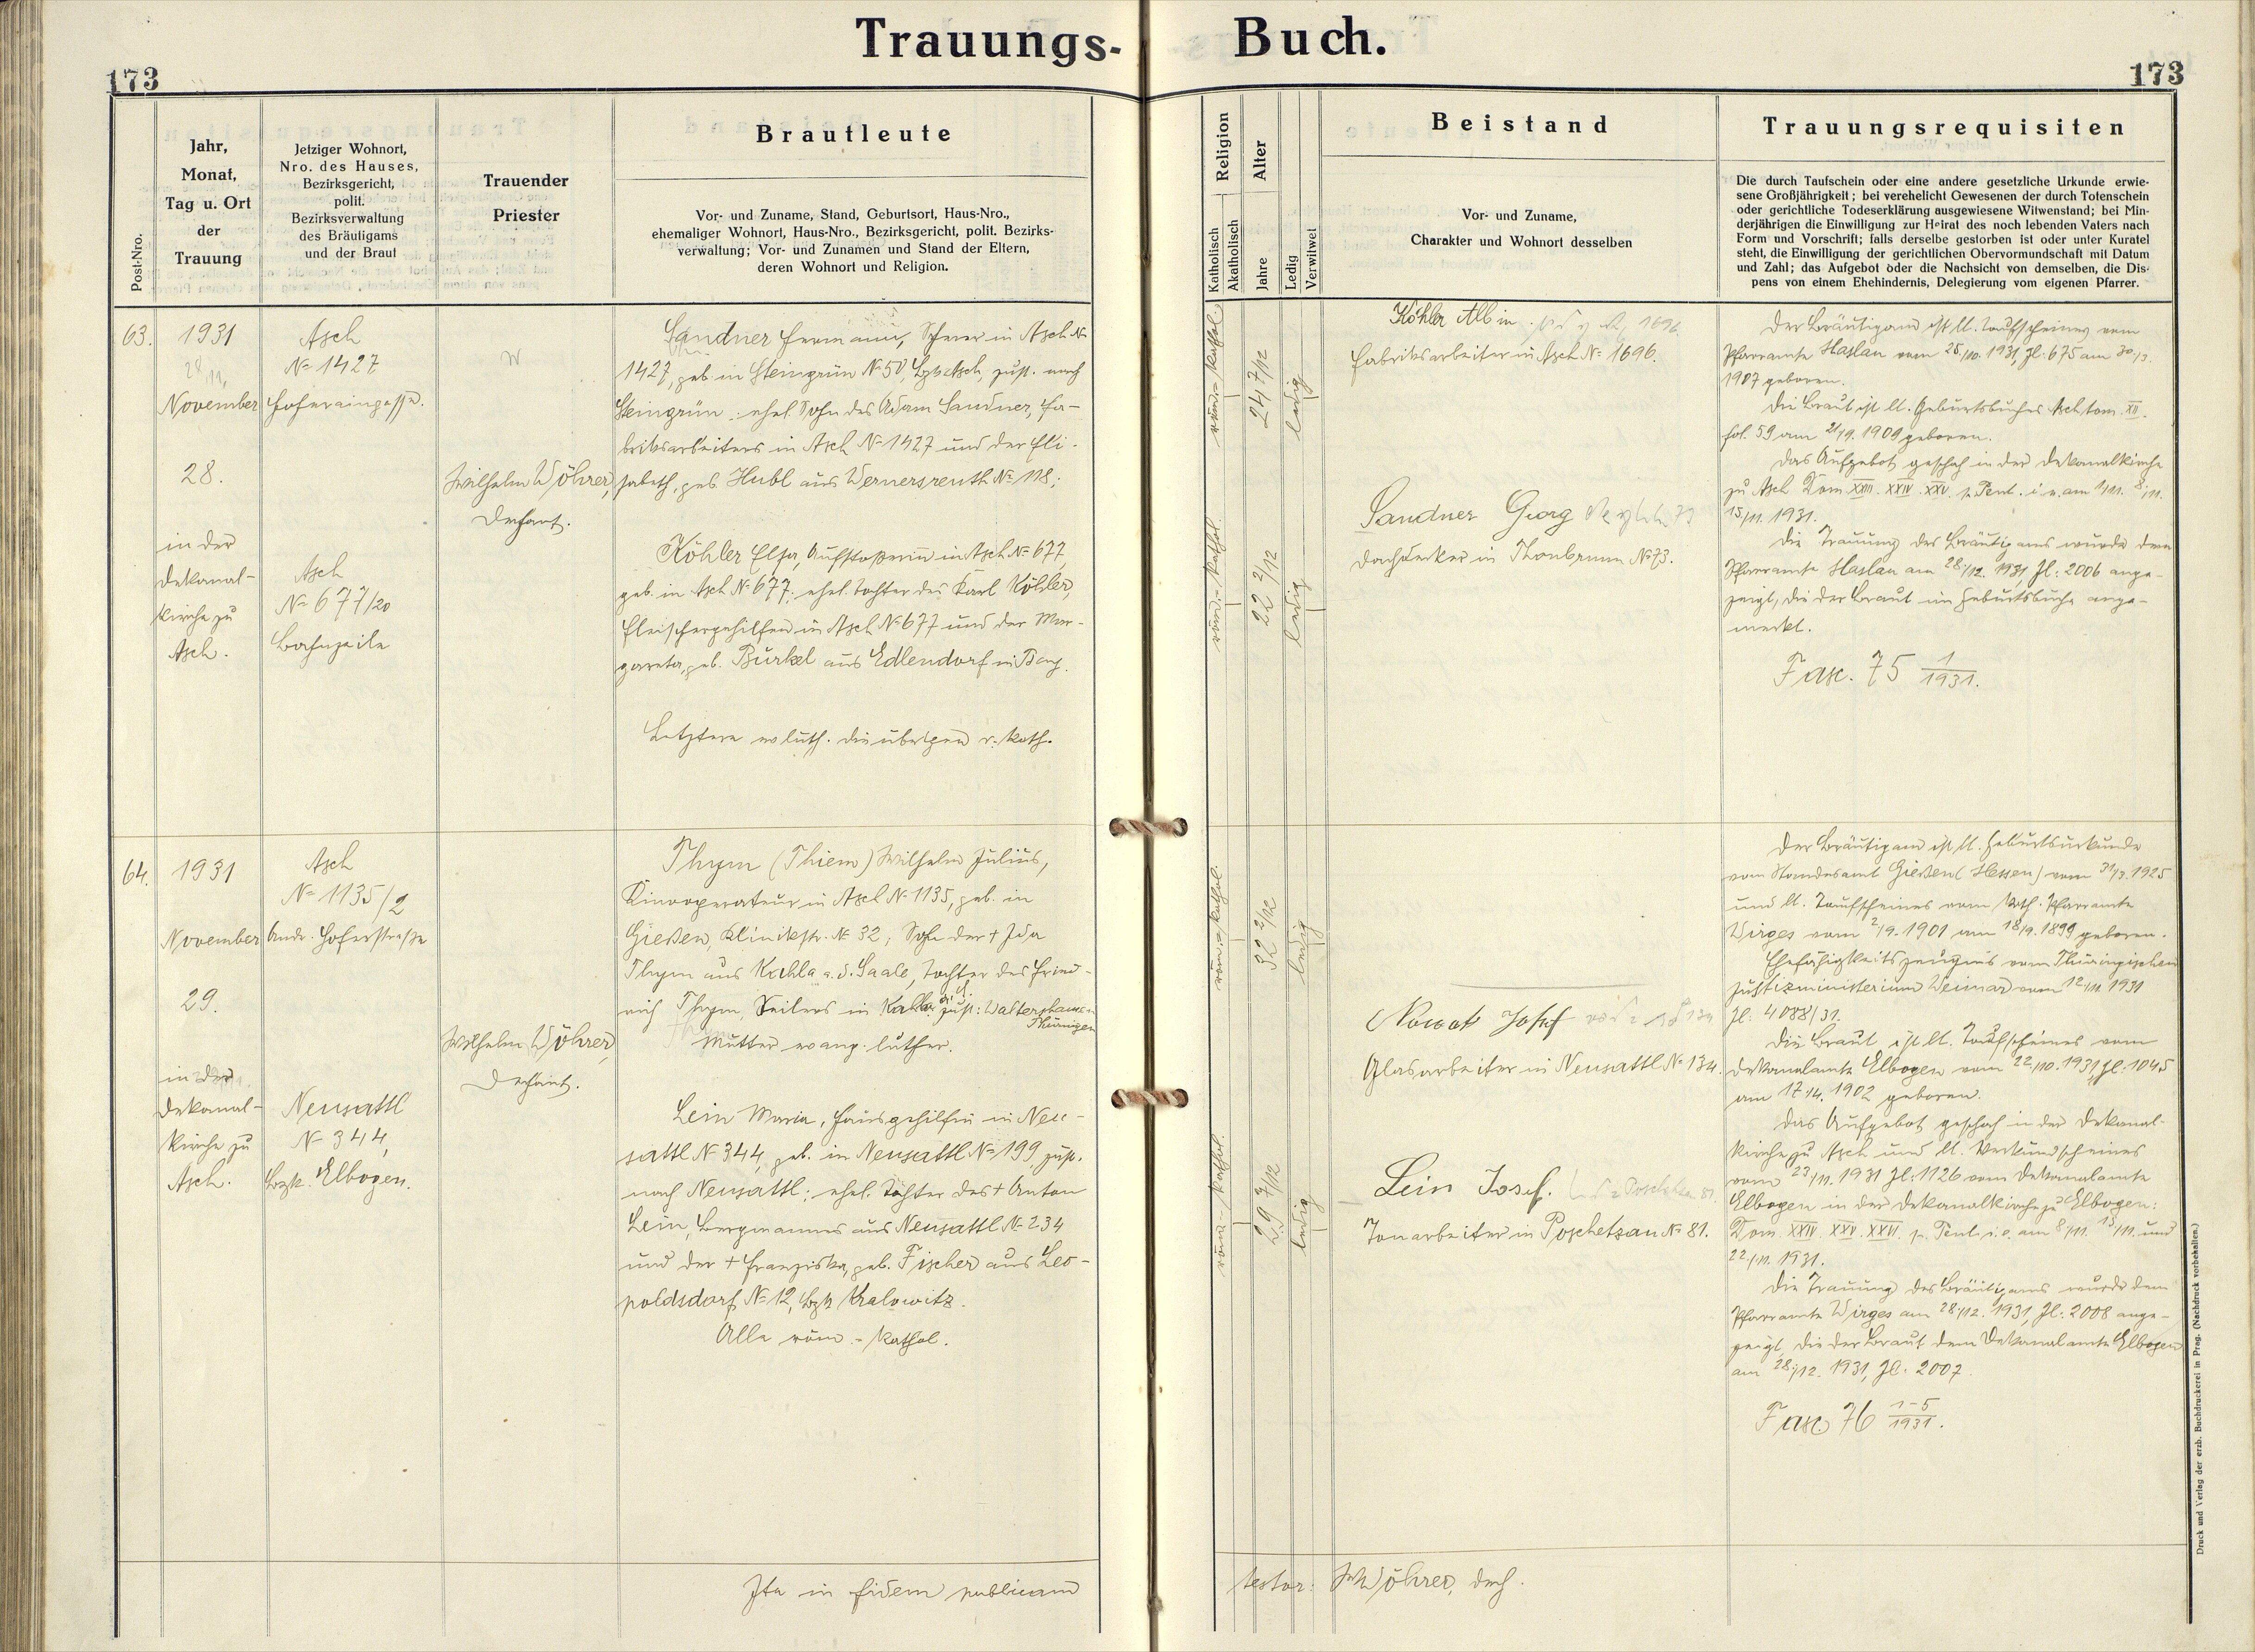 Trauungs- Buch.
173
173
Post-Nro.
Jahr,
Monat,
Tag u. Ort
der
Trauung
Jetziger Wohnort,
Nro. des Hauses,
Bezirksgericht,
polit.
Bezirksverwaltung
des Bräutigams
und der Braut
Trauender
Priester
Brautleute
Vor- und Zuname, Stand, Geburtsort, Haus-Nro.,
ehemaliger Wohnort, Haus-Nro., Bezirksgericht, polit. Bezirks-
verwaltung; Vor- und Zunamen und Stand der Eltern,
deren Wohnort und Religion.
63.
1931
November
28.
in der
Dekanal-
kirche zu
Asch.
Asch
No 1427
Hoferaingasse.
Asch
No 677/20
Bahnzeile
Wilhelm Wöhrer,
Dechant.
Sandner Hermann, Scherer in Asch No
1427, geb. in Steingrün No 50, Bzk Asch, zust. nach
Steingrün; ehel. Sohn des Adam Sandner, Fa-
briksarbeiters in Asch No 1427 und der Eli-
sabeth, geb. Hubl aus Wernersreuth No 118;
Köhler Elsa, Aufstoßerin in Asch No 677,
geb. in Asch No 677; ehel. Tochter des Karl Köhler,
Fleischergehilfen in Asch No 677 und der Mar-
gareta, geb. Bürkel aus Edlendorf in Bay.
Letztere ev luth. die übrigen r. kath.
64.
1931
November
29.
in der
Dekanal-
kirche zu
Asch.
Asch
No 1135/2
Andr. Hoferstraße
Neusattl
No 344,
Bzk. Elbogen.
Wilhelm Wöhrer,
Dechant.
Thym (Thiem) Wilhelm Julius,
Kinooperateur in Asch No 1135, geb. in
Gießen, Klinikstr. No 32; Sohn der + Ida
Thym aus Kahla a. d. Saale, Tochter des Fried-
rich Thym, Seilers in Kahla zust: Waltershausen
Thüringen
Mutter evang. luther.
Lein Maria, Hausgehilfin in Neu-
sattl No 344, geb. in Neusattl No 199, zust.
nach Neusattl; ehel. Tochter des + Anton
Lein, Bergmannes aus Neusattl No 234
und der + Franziska, geb. Fischer aus Leo-
poldsdorf No 12, Bzk Kralowitz.
Alle röm.-kathol.
Ita in fidem publicam
Religion
Katholisch
Akatholisch
Alter
Jahre
Ledig
Verwitwet
Beistand
Vor- und Zuname,
Charakter und Wohnort desselben
Trauungsrequisiten
Die durch Taufschein oder eine andere gesetzliche Urkunde erwie-
sene Großjährigkeit; bei verehelicht Gewesenen der durch Totenschein
oder gerichtliche Todeserklärung ausgewiesene Witwenstand; bei Min-
derjährigen die Einwilligung zur Heirat des noch lebenden Vaters nach
Form und Vorschrift; falls derselbe gestorben ist oder unter Kuratel
steht, die Einwilligung der gerichtlichen Obervormundschaft mit Datum
und Zahl; das Aufgebot oder die Nachsicht von demselben, die Dis-
pens von einem Ehehindernis, Delegierung vom eigenen Pfarrer.
röm.-kathol.
24 7/12
ledig
röm.-kathol.
22 2/12
ledig
Köhler Albin
Fabriksarbeiter in Asch No 1696.
Sandner Georg
Dachdecker in Thonbrunn No 73.
Der Bräutigam ist lt. Taufscheines vom
Pfarramte Haslau vom 25/10. 1931, Zl: 675 am 30/3.
1907 geboren.
Die Braut ist lt. Geburtsbuches Asch tom. XII.
fol. 59 am 21/9. 1909 geboren.
Das Aufgebot geschah in der Dekanalkirche
zu Asch Dom. XXIII. XXIV. XXV. p. Pent. i. e. am 1/11. 8/11.
15/11. 1931.
Die Trauung des Bräutigams wurde dem
Pfarramte Haslau am 28/12. 1931, Zl: 2006 ange-
zeigt, die der Braut im Geburtsbuche ange-
merkt.
Fasc. 75 1/1931.
röm.-kathol.
32 2/12
ledig
röm.-kathol.
29 7/12
ledig
Nowak Josef
Glasarbeiter in Neusattl No 134.
Lein Josef.
Tonarbeiter in Poschetzau No 81.
Der Bräutigam ist lt. Geburtsurkunde
vom Standesamt Gießen (Hessen) vom 31/3. 1925
und lt. Taufscheines vom kath. Pfarramte
Wirges vom 2/9. 1901 am 18/9. 1899 geboren.
Ehefähigkeitszeugnis vom Thüringischen
Justizministerium Weimar vom 12/11 1931
Zl: 4088/31.
Die Braut ist lt. Taufscheines vom
Dekanalamte Elbogen vom 22/10. 1931 Zl: 1045
am 17/4. 1902 geboren.
Das Aufgebot geschah in der Dekanal-
kirche zu Asch und lt. Verkündscheines
vom 23/11. 1931 Zl: 1126 vom Dekanalamte
Elbogen in der Dekanalkirche zu Elbogen:
Dom. XXIV. XXV. XXVI. p. Pent. i. e. am 8/11. 15/11. und
22/11. 1931.
Die Trauung des Bräutigams wurde dem
Pfarramte Wirges am 28/12. 1931, Zl: 2008 ange-
zeigt, die der Braut dem Dekanalamte Elbogen
am 28/12. 1931, Zl: 2007
Fasc 76 1-5/1931.
testor: W Wöhrer, dech.
Druck und Verlag der erzb. Buchdruckerei in Prag. (Nachdruck vorbehalten.)